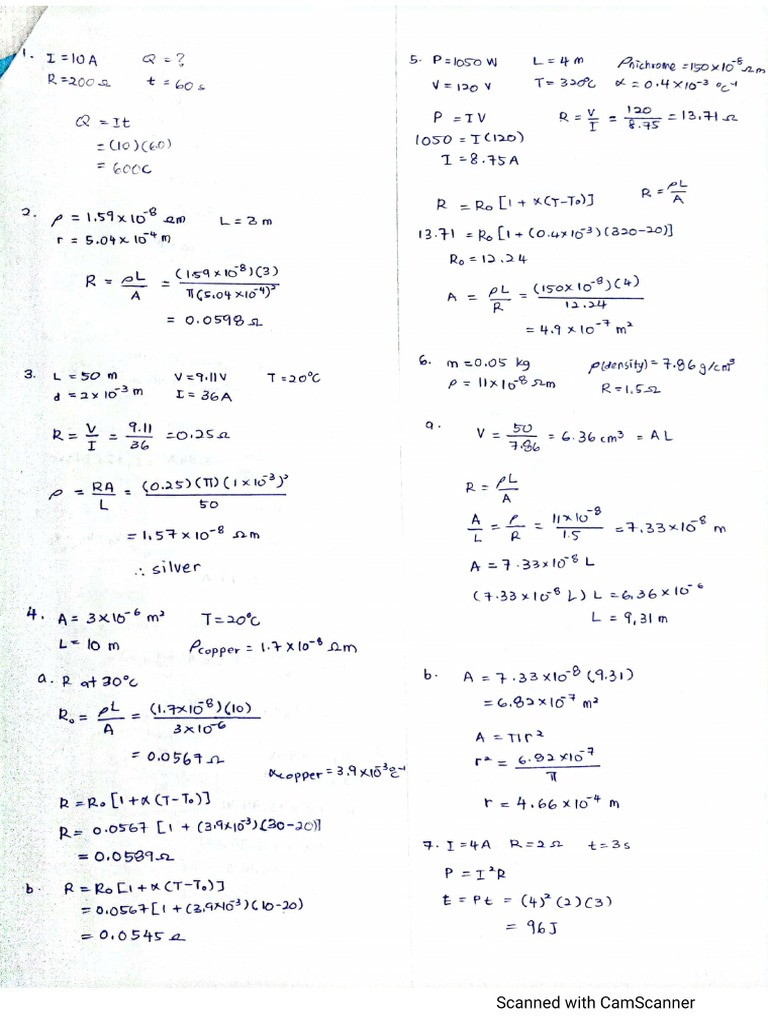 1. I = 10 A   Q = ?
R = 200 Ω   t = 60 s
Q = It
= (10)(60)
= 600C
2. ρ = 1.59 × 10⁻⁸ Ωm   L = 3 m
r = 5.04 × 10⁻⁴ m
R = ρL/A = (1.59 × 10⁻⁸)(3)/π(5.04 × 10⁻⁴)²
= 0.0598 Ω
3. L = 50 m   V = 9.11 V   T = 20°C
d = 2 × 10⁻³ m   I = 36 A
R = V/I = 9.11/36 = 0.25 Ω
ρ = RA/L = (0.25)(π)(1 × 10⁻³)²/50
= 1.57 × 10⁻⁸ Ωm
∴ silver
4. A = 3 × 10⁻⁶ m²   T = 20°C
L = 10 m   ρcopper = 1.7 × 10⁻⁸ Ωm
a. R at 30°C
R₀ = ρL/A = (1.7×10⁻⁸)(10)/3×10⁻⁶
= 0.0567 Ω
αcopper = 3.9 × 10⁻³ °C⁻¹
R = R₀ [1 + α (T-T₀)]
R = 0.0567 [1 + (3.9×10⁻³)(30-20)]
= 0.0589 Ω
b. R = R₀ [1 + α (T-T₀)]
= 0.0567 [1 + (3.9×10⁻³)(10-20)
= 0.0545 Ω
5. P = 1050 W   L = 4 m   ρnichrome = 150 × 10⁻⁸ Ωm
V = 120 V   T = 320°C   α = 0.4 × 10⁻³ °C⁻¹
P = IV   R = V/I = 120/8.75 = 13.71 Ω
1050 = I (120)
I = 8.75 A
R = R₀ [1 + α(T-T₀)]   R = ρL/A
13.71 = R₀ [1 + (0.4×10⁻³)(320-20)]
R₀ = 12.24
A = ρL/R = (150×10⁻⁸)(4)/12.24
= 4.9 × 10⁻⁷ m²
6. m = 0.05 kg   ρ(density) = 7.86 g/cm³
ρ = 11 × 10⁻⁸ Ωm   R = 1.5 Ω
a. V = 50/7.86 = 6.36 cm³ = AL
R = ρL/A
A/L = ρ/R = 11×10⁻⁸/1.5 = 7.33 × 10⁻⁸ m
A = 7.33×10⁻⁸ L
(7.33 × 10⁻⁸ L) L = 6.36 × 10⁻⁶
L = 9.31 m
b. A = 7.33 × 10⁻⁸ (9.31)
= 6.82 × 10⁻⁷ m²
A = πr²
r² = 6.82 × 10⁻⁷/π
r = 4.66 × 10⁻⁴ m
7. I = 4A   R = 2 Ω   t = 3 s
P = I²R
E = Pt = (4)² (2)(3)
= 96J
Scanned with CamScanner